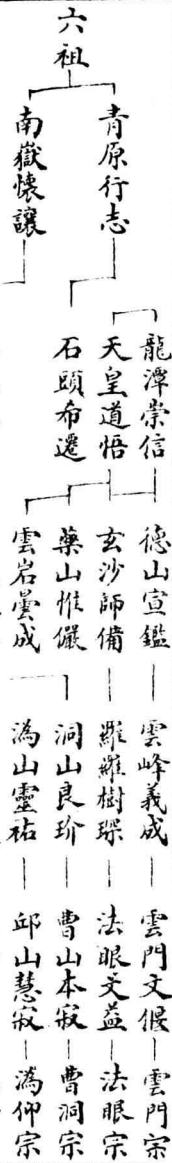 六祖
青原行志
南嶽懷讓
龍潭崇信
天皇道悟
石頭布遷
德山宣鑑
玄沙師備
藥山惟儼
雲岩曇成
雲峰義成
羅羅樹琛
洞山良玠
溈山靈祐
雲門文偃
法眼文益
曹山本寂
邱山慧寂
雲門宗
法眼宗
曹洞宗
溈仰宗